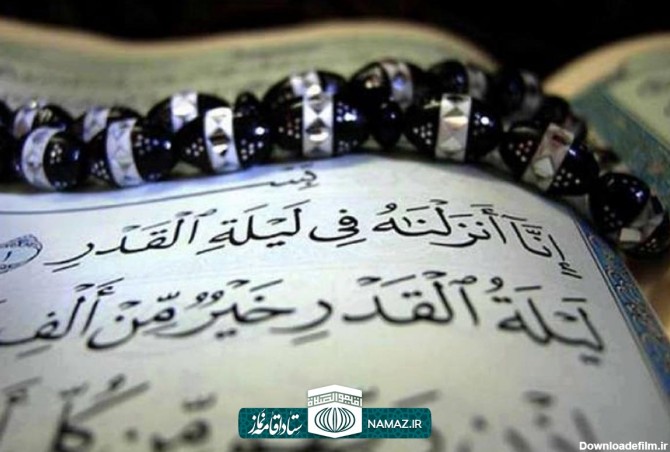 إِنَّآ أَنزَلْنَـٰهُ فِى لَيْلَةِ ٱلْقَدْرِ ١
لَيْلَةُ ٱلْقَدْرِ خَيْرٌ مِّنْ أَلْفِ
مِّن كُلِّ
ستاد اقامه نماز
أقيموا الصلاة
NAMAZ.IR
Downloadefilm.ir